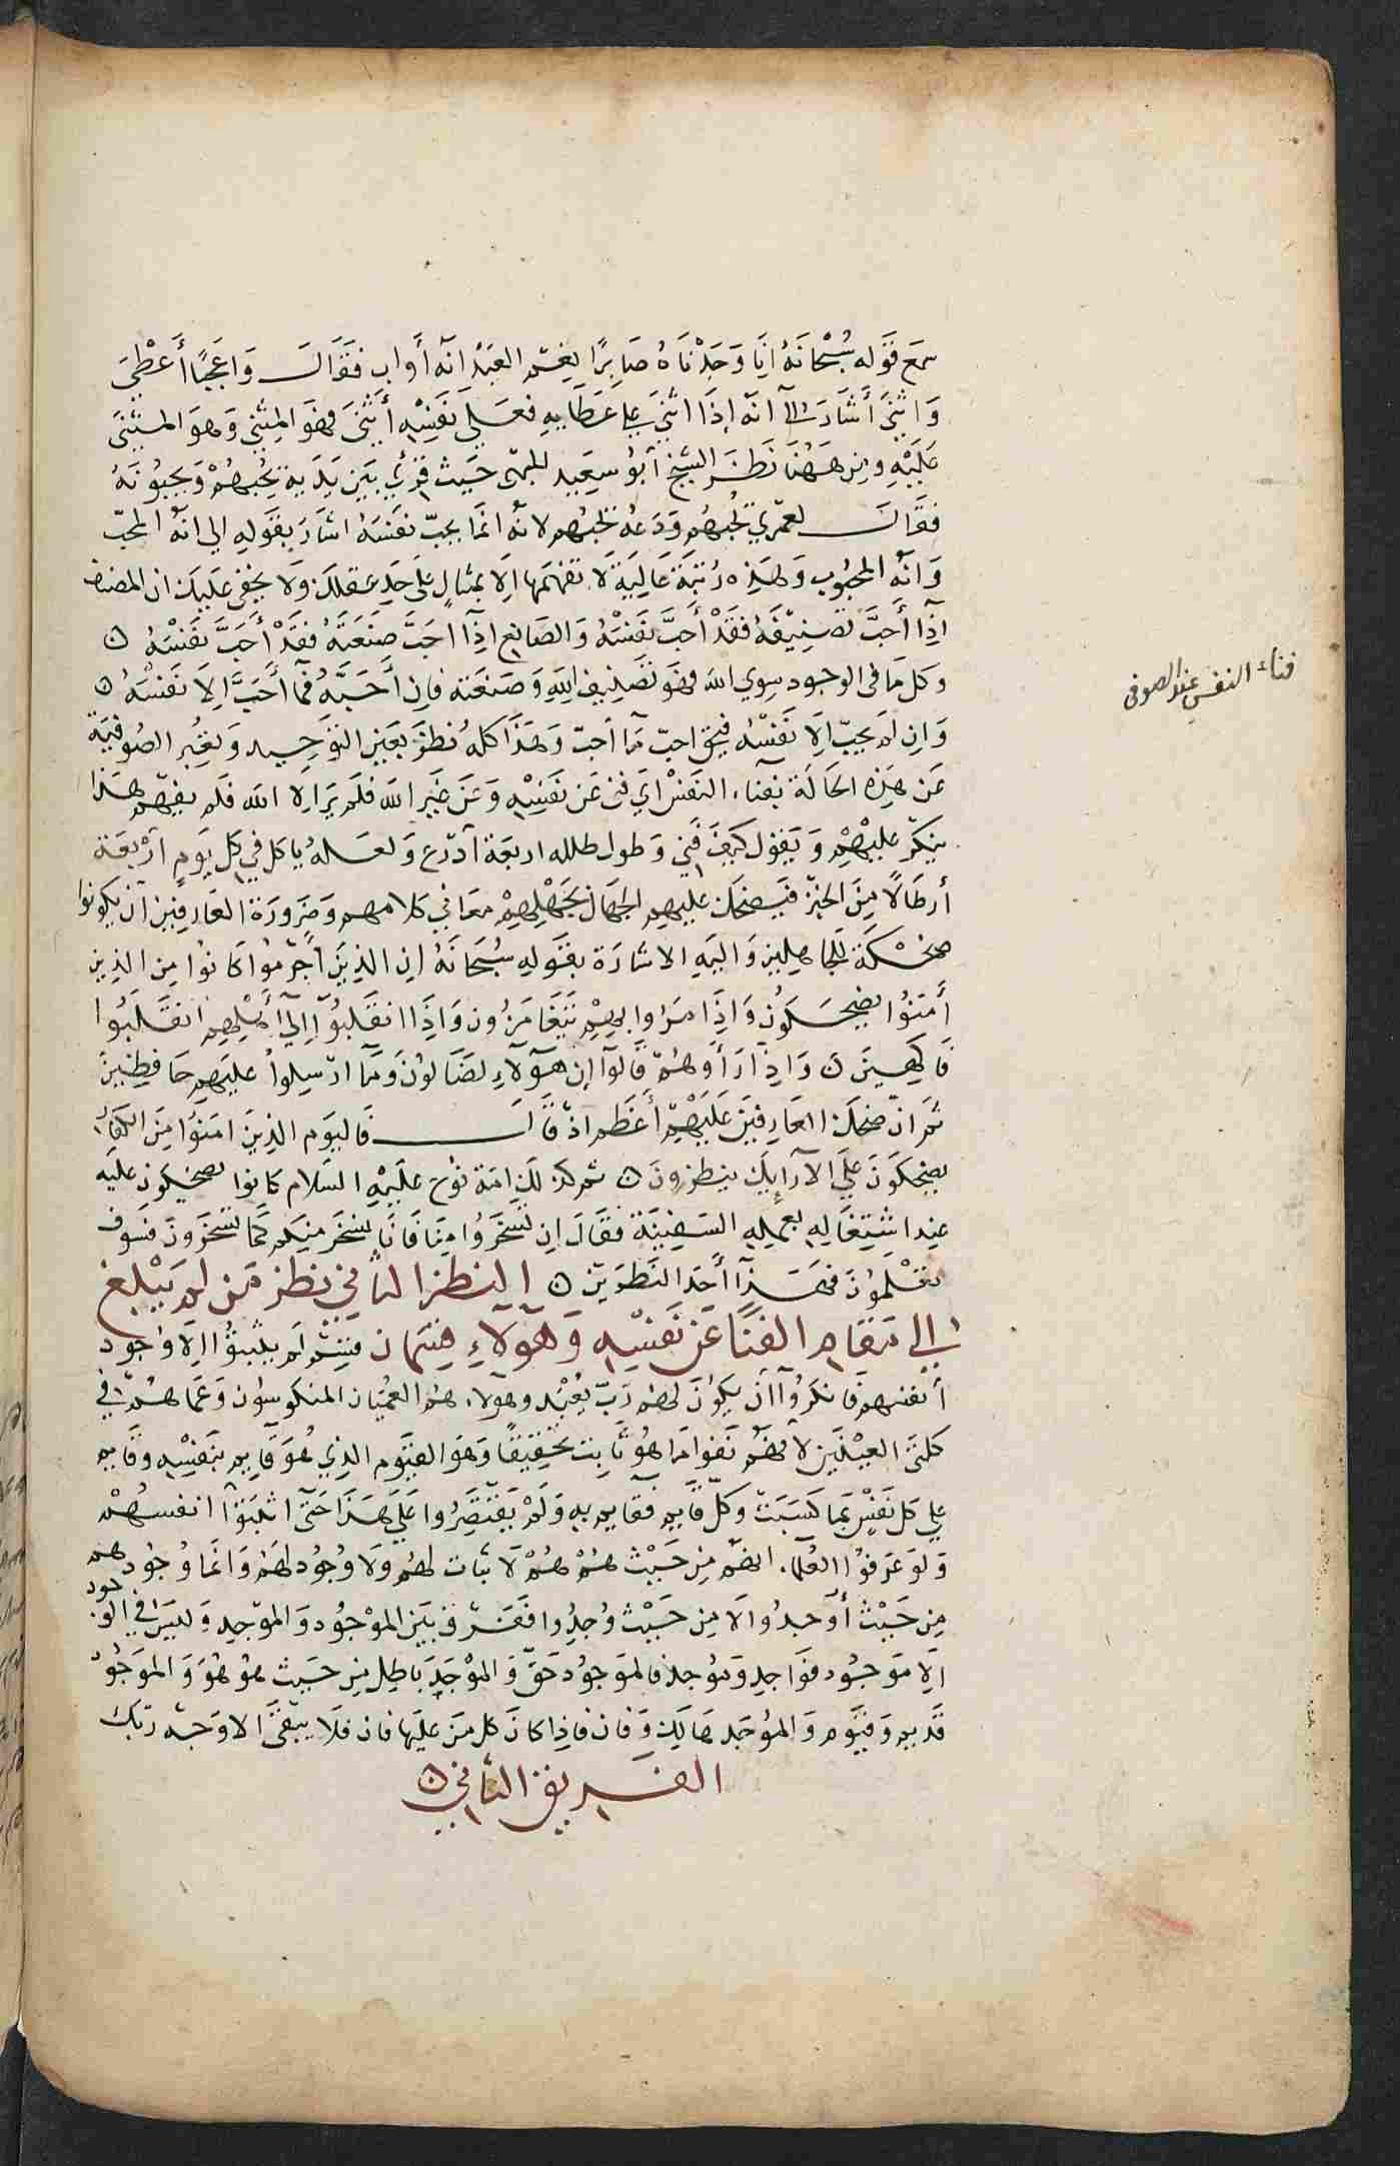 سمع قوله سبحانه انا وجدناه صابرا نعم العبد انه أواب فقال واعجبا أعطى
واثنى أشار الى انه إذا اثنى على عطايه فعلى نفسه أثنى فهو المثنى وهو المثنى
عليه ومن ههنا نظر الشيخ أبو سعيد المهنى حيث قرئ بين يديه يحبهم ويحبونه
فقال لعمري يحبهم ودعه يحبهم لانه انما يحب نفسه اشار بقوله الى انه المحب
وانه المحبوب وهذه رتبة عالية لا تفهمها الا بمثال على حد عقلك ولا يخفى عليك ان المصنف
اذا أحب تصنيفه فقد أحب نفسه والصانع اذا احب صنعته فقد أحب نفسه ٥
وكل ما فى الوجود سوى الله فهو تصنيف الله وصنعته فان أحبه فما أحب الا نفسه ٥
وان لم يحب الا نفسه فبحق احب ما أحب وهذا كله نظر بعين التوحيد وتعبر الصوفية
عن هذه الحالة بفناء النفس اي فنى عن نفسه وعن غير الله فلم ير الا الله فلم يفهم هذا
ينكر عليهم ويقول كيف فني وطول ظلله اربعة أذرع ولعله يأكل في كل يوم أربعة
أرطالا من الخبز فيضحك عليهم الجهال لجهلهم معانى كلامهم وضرورة العارفين أن يكونوا
ضحكة للجاهلين واليه الاشارة بقوله سبحانه ان الذين أجرموا كانوا من الذين
أمنوا يضحكون واذا مروا بهم يتغامزون واذا انقلبوا إلى أهلهم انقلبوا
فاكهين ٥ واذا رأوهم قالوا إن هؤلاء لضالون وما ارسلوا عليهم حافظين
ثم ان ضحك العارفين عليهم أعظم اذ قال فاليوم الذين امنوا من الكفار
يضحكون على الأرايك ينظرون ٥ ثم كذلك امة نوح عليه السلام كانوا يضحكون عليه
عند اشتغاله بعمله السفينة فقال ان تسخروا منا فانا نسخر منكم كما تسخرون فسوف
تعلمون فهذا أحد النظرين ٥ النظر الثاني نظر من لم يبلغ
الى مقام الفنا عن نفسه وهؤلاء قسمان قسم لم يثبتوا الا وجود
أنفسهم فانكروا أن يكون لهم رب يعبد وهولاء هم العميان المنكوسون وعماهم في
كلتى العينين لانهم نفوا ما هو ثابت تحقيقا وهو القيوم الذي هو قايم بنفسه وقايم
على كل نفس بما كسبت وكل قايم فقايم به ولم يقتصروا على هذا حتى اثبتوا انفسهم
ولو عرفوا لعلموا انهم من حيث هم هم لا ثبات لهم ولا وجود لهم وانما وجودهم
من حيث أوجدوا لا من حيث وجدوا ففرق بين الموجود والموجد وليس في الوجود
الا موجود فواجد وموجد فالموجود حق والموجد باطل من حيث هو هو والموجود
قديم وقيوم والموجد هالك وفان فاذا كان كل من عليها فان فلا يبقى الا وجه ربك
الفريق الثاني ٥
فناء النفس عند الصوفى